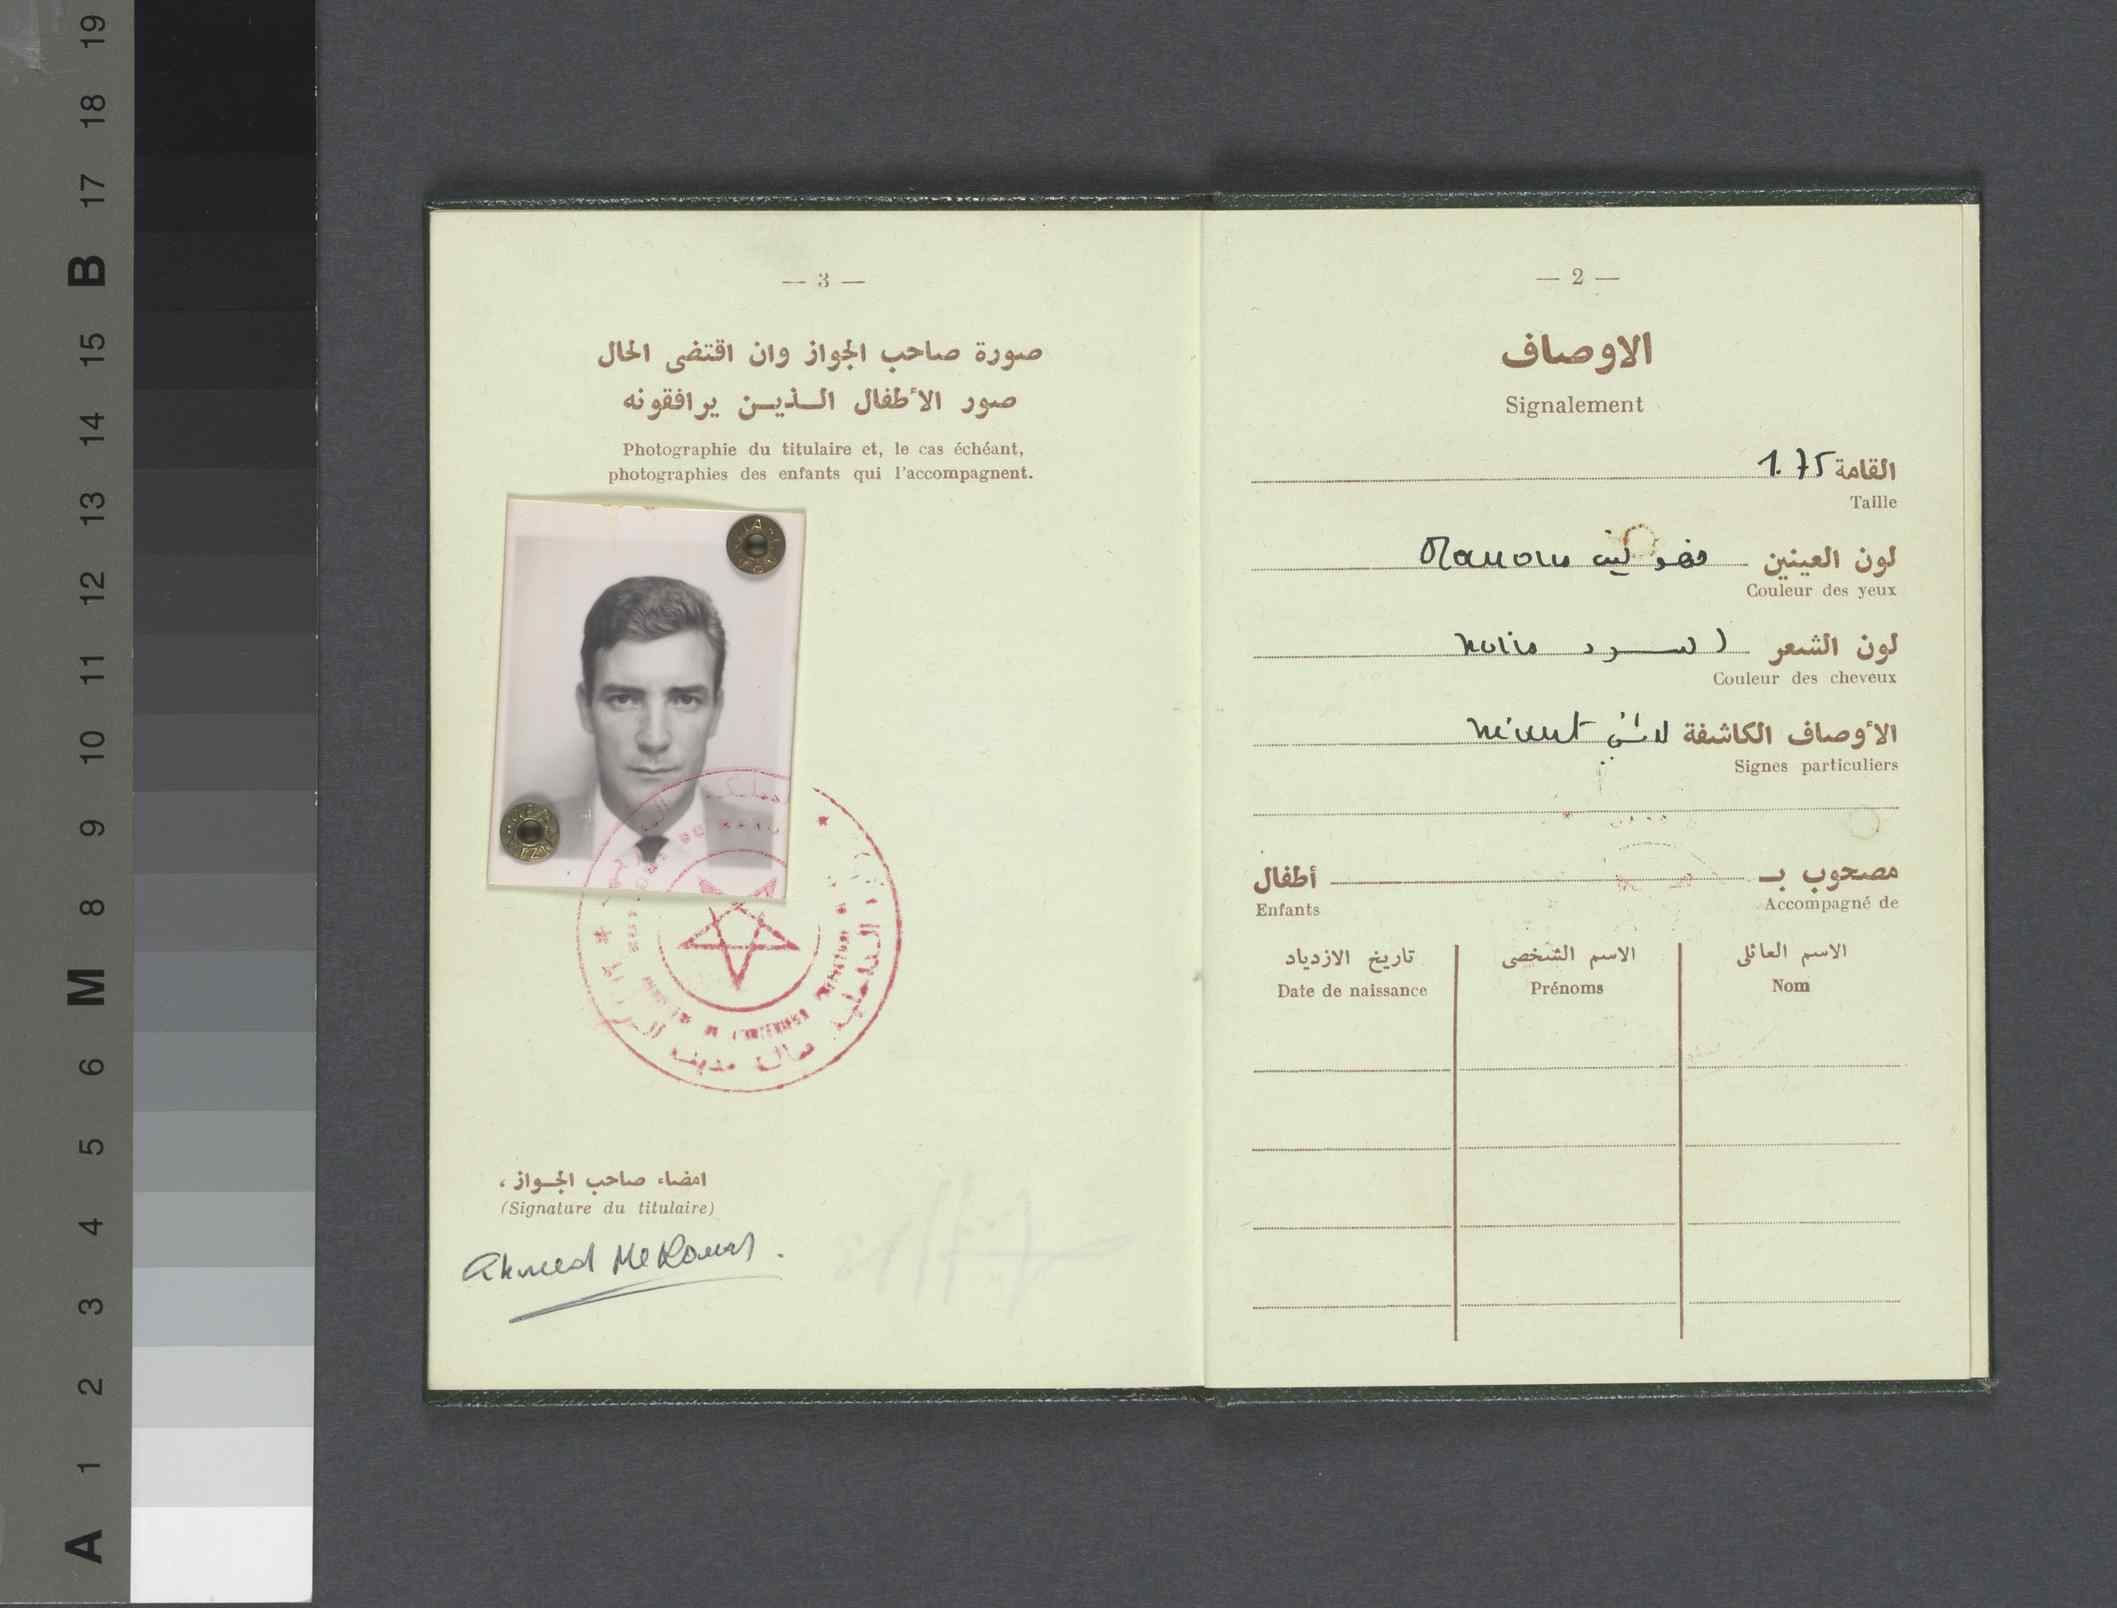 — 2 —
الاوصاف
Signalement
القامة 1.75
Taille
لون العينين Marrons
Couleur des yeux
لون الشعر اسود noirs
Couleur des cheveux
الأوصاف الكاشفة néant
Signes particuliers
مصحوب بـ أطفال
Accompagné de Enfants
الاسم العائلى الاسم الشخصى تاريخ الازدياد
Nom Prénoms Date de naissance
— 3 —
صورة صاحب الجواز وان اقتضى الحال
صور الأطفال الـذيـن يرافقونه
Photographie du titulaire et, le cas échéant,
photographies des enfants qui l'accompagnent.
امضاء صاحب الجـواز ،
(Signature du titulaire)
Ahmed
A 1 2 3 4 5 6 M 8 9 10 11 12 13 14 15 B 17 18 19